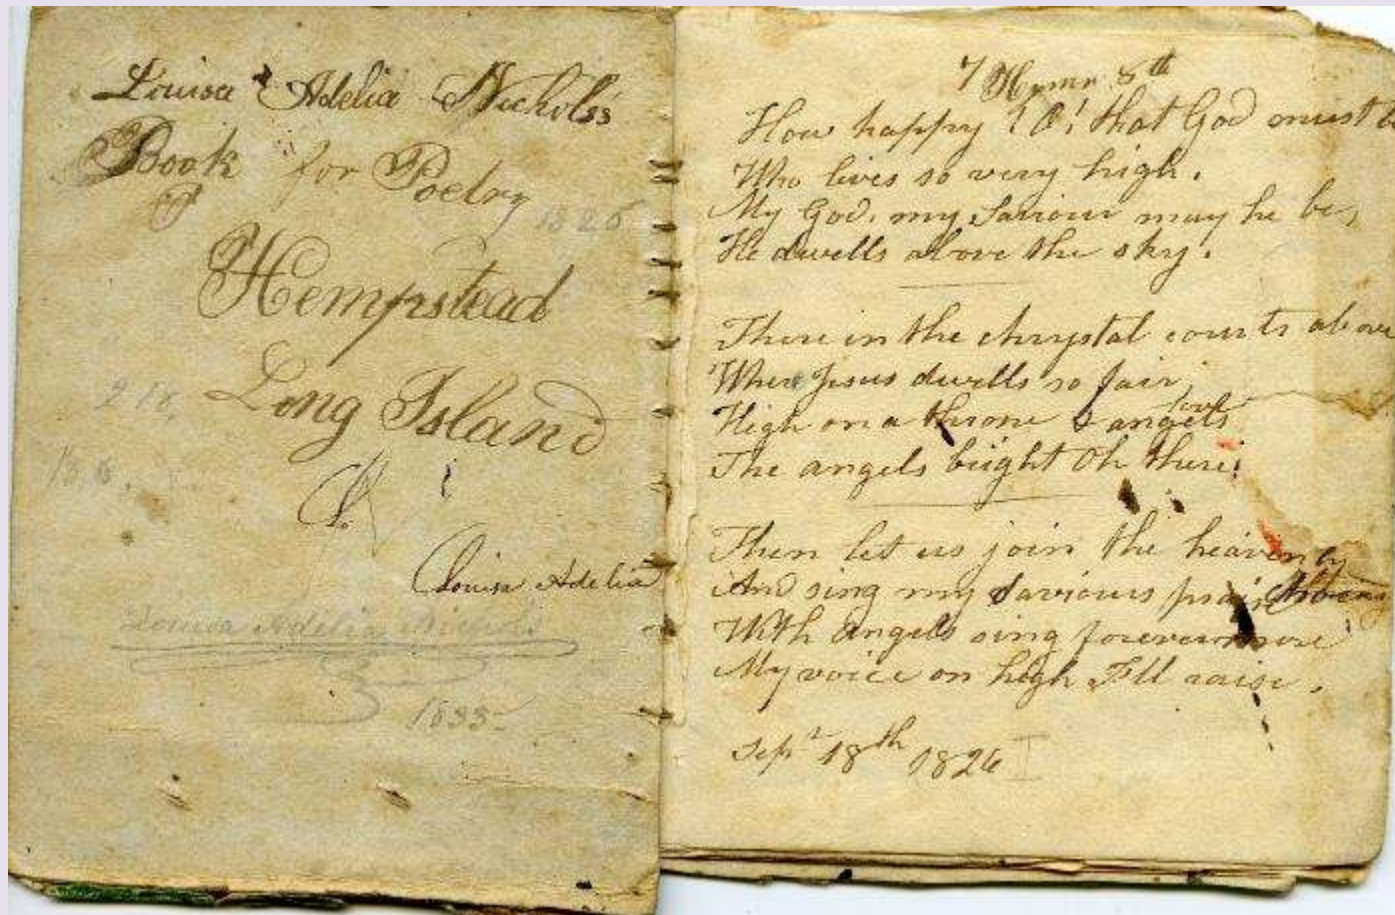 Louisa Adelia Nichols's
Book for Poetry
1826
Hempstead
Long Island
Louisa Adelia
Louisa Adelia Nichols
1835
7 Hymn 8th
How happy ! O! that God must be
Who lives so very high.
My God, my Saviour may he be,
He dwells above the sky.
There in the chrystal courts above
Where Jesus dwells so fair,
High on a throne & angels
The angels bright Oh there!
Then let us join the heavenly
And sing my Saviours praise
With angels sing forevermore
My voice on high I'll raise.
Sept 18th 1826